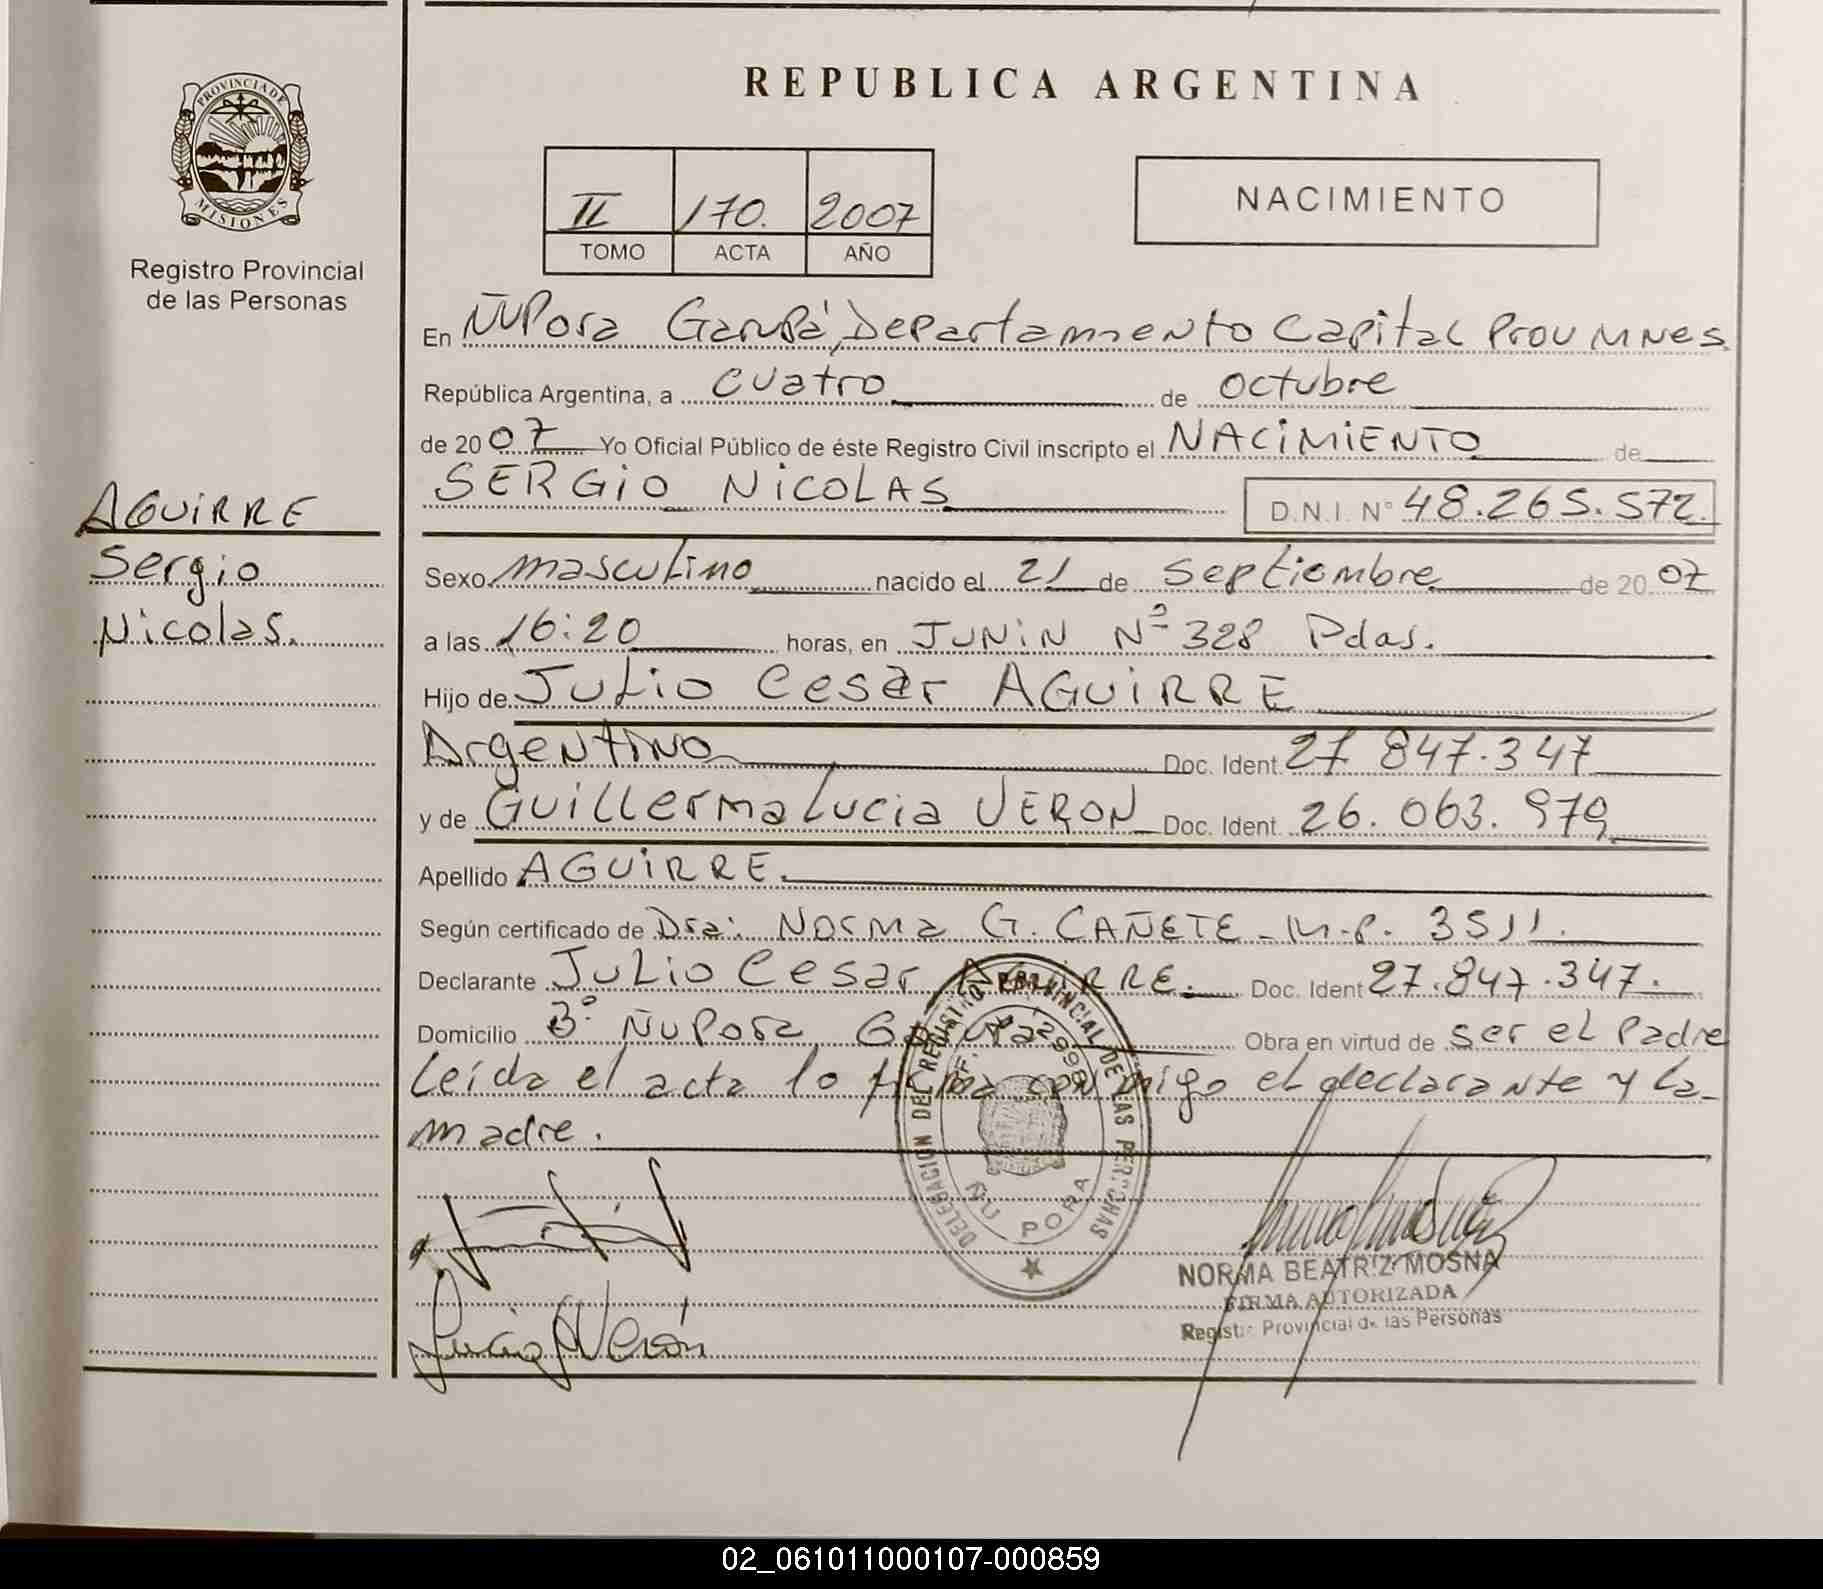 REPUBLICA ARGENTINA
PROVINCIA DE
MISIONES
Registro Provincial
de las Personas
II 170. 2007
TOMO ACTA AÑO
NACIMIENTO
En ÑuPora Garupá, Departamento Capital Prov Mnes.
República Argentina, a cuatro de octubre
de 2007 Yo Oficial Público de éste Registro Civil inscripto el NACIMIENTO de
SERGIO NICOLAS D.N.I. Nº 48.265.572.
AGUIRRE
Sergio
Nicolas.
Sexo masculino nacido el 21 de Septiembre de 2007
a las 16:20 horas, en JUNIN Nº 328 Pdas.
Hijo de Julio Cesar AGUIRRE
Argentino Doc. Ident. 27 847.347
y de Guillerma Lucia VERON Doc. Ident. 26.063.979
Apellido AGUIRRE.
Según certificado de Dra: Norma G. CAÑETE - M.P. 3511.
Declarante Julio Cesar AGUIRRE. Doc. Ident 27.847.347.
Domicilio Bº ÑuPora Garupá Obra en virtud de ser el Padre
Leída el acta lo firma conmigo el declarante y la
madre.
DELEGACION DEL REGISTRO PROVINCIAL DE LAS PERSONAS
ÑU PORA
NORMA BEATRIZ MOSNA
FIRMA AUTORIZADA
Registro Provincial de las Personas
Lucia Verón
02_061011000107-000859